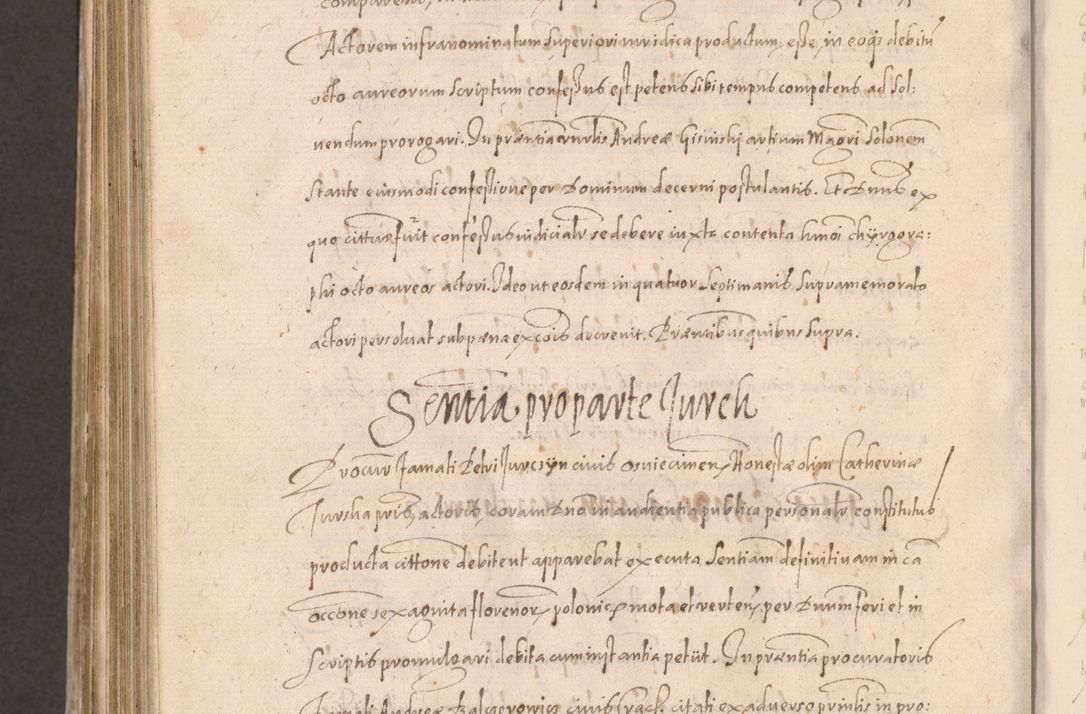 Actorem infranominatum superiori iuridica productum, esse, in eoq3 debitū
octo aureorum scriptum confessus est petens sibi tempus competens ad sol:
uendum prorogari. In præntia Andreæ Gisinski artium Magri solonem
stante eiusmodi confessione per Dominum decerni postulantis. Et Dnus ex
quo cittus fuit confessus iudicialr se debere iuxta contenta hmoi chyrogra:
phi octo aureos actori. Ideo ut eosdem in quatuor septimanis supramemorato
actori persoluat sub pæna excois decreuit. Præntibus quibus supra.
Sentia pro parte Jurch
Procur famati Petri Jurcsyn ciuis osuiecimen Honestæ olim Catherinæ
Jurska pris actoris, coram Dno in audientia publica personalr constitutus
producta cittone debite ut apparebat executa sentiam definitiuam in ca
occone sexaginta florenor polonic mota et verten per Dnum ferri et in
scriptis promulgari debita cum instantia petiit. In præntia procuratoris
famati Andreæ Balcerowicz ciuis Crac. citati ex aduerso prinlis in pro: